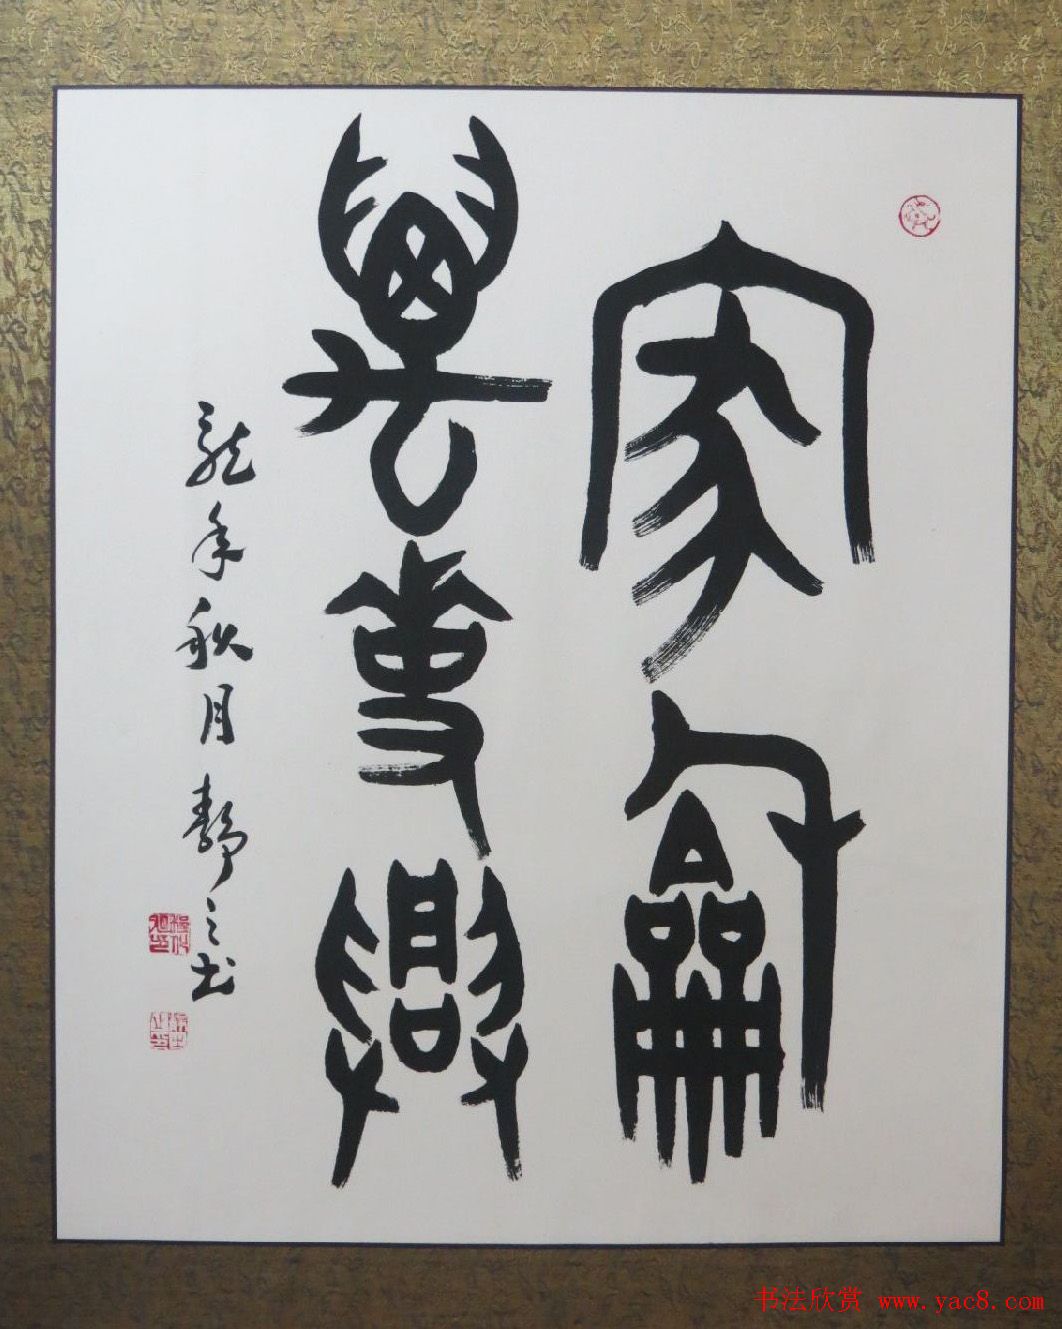 家龢
萬事興
龍年秋月靜之書
书法欣赏 www.yac8.com